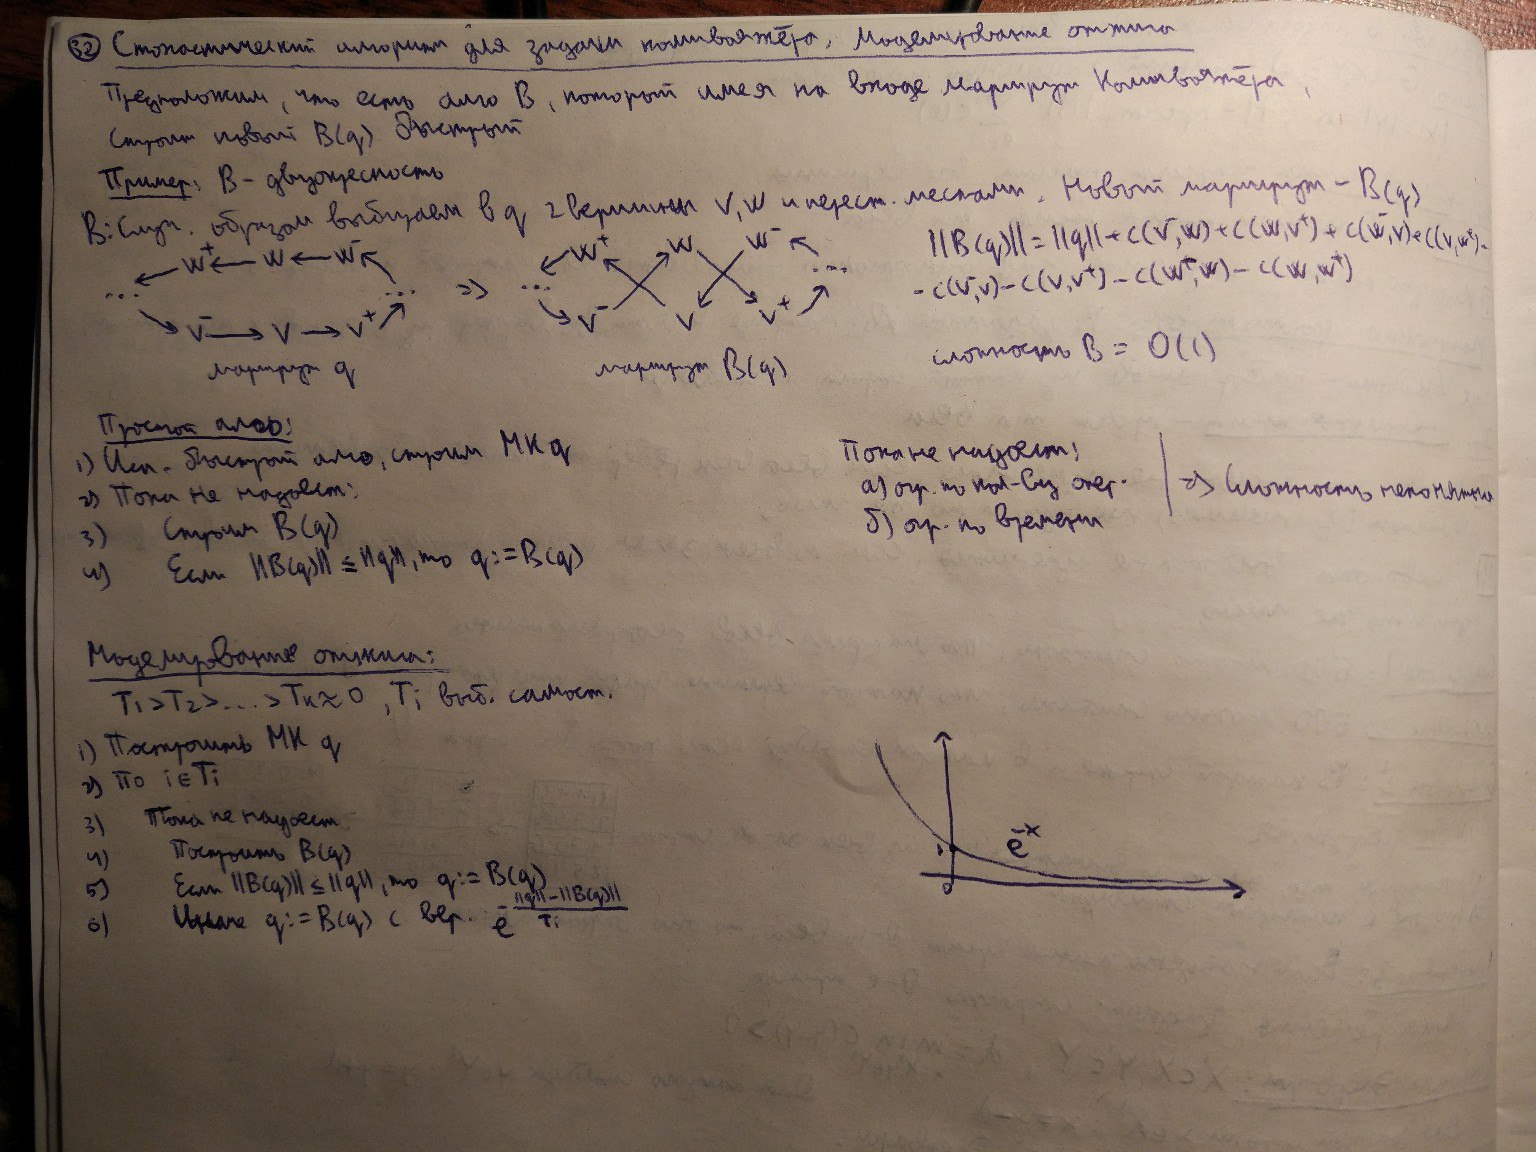 32 Стохастический алгоритм для задачи коммивояжёра. Моделирование отжига
Предположим, что есть алго B, который имея на входе маршрут Коммивояжёра,
строит новый B(q) быстрый
Пример: B - двуокресность
B: Случ. образом выбираем в q 2 вершины V, W и перест. местами. Новый маршрут - B(q)
||B(q)|| = ||q|| + c(V⁻,W) + c(W,V⁺) + c(W⁻,V) + c(V,W⁺) -
- c(V⁻,V) - c(V,V⁺) - c(W⁻,W) - c(W,W⁺)
W⁺ ← W ← W⁻
... ...
V⁻ → V → V⁺
маршрут q
=>
W⁺ W W⁻
... ...
V⁻ V V⁺
маршрут B(q)
сложность B = O(1)
Простой алго:
1) Исп. быстрый алго, строим МК q
2) Пока не надоест:
3) Строим B(q)
4) Если ||B(q)|| ≤ ||q||, то q := B(q)
Пока не надоест:
а) огр. по кол-ву опер.
б) огр. по времени
=> Сложность непонятна
Моделирование отжига:
T₁ > T₂ > ... > Tₖ ≈ 0, Tᵢ выб. самост.
1) Построить МК q
2) по i ∈ Tᵢ
3) Пока не надоест
4) Построить B(q)
5) Если ||B(q)|| ≤ ||q||, то q := B(q)
6) Иначе q := B(q) с вер. e^(-(||q|| - ||B(q)||)/Tᵢ)
1
e^(-x)
0